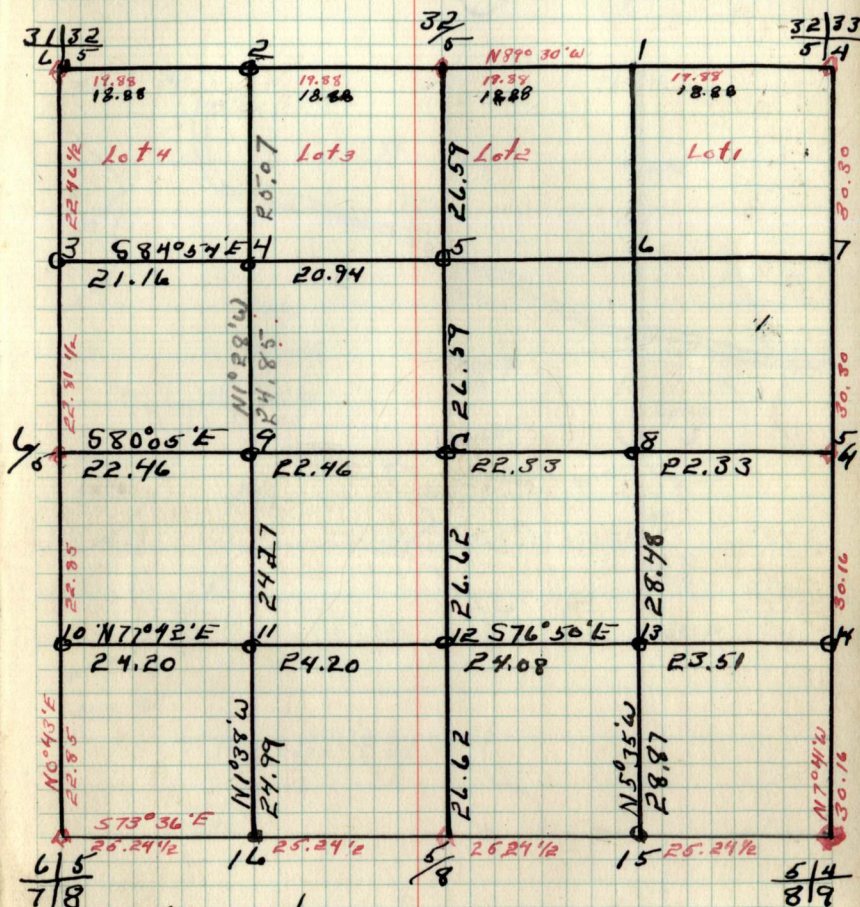 31|32 32/5 32|33
6|5 2 N89°30'W 1 5|4
19.88 19.88 19.88 19.88
18.88 18.88 18.88 18.88
Lot 4 Lot 3 Lot 2 Lot 1
22.46 1/2 26.59 30.30
3 S84°54'E 4 5 6 7
21.16 20.94
22.81 1/2 N1°28'W 24.85 26.59 30.30
6/5 S80°05'E 9 8 5/4
22.46 22.46 22.33 22.33
22.85 26.62 28.48 30.16
10 N77°42'E 11 12 S76°50'E 13 14
24.20 24.20 24.08 23.51
N0°43'E 22.85 N1°38'W 24.99 26.62 N5°35'W 28.87 N7°41'W 30.16
S73°36'E
25.24 1/2 16 25.24 1/2 5/8 25 24 1/2 15 25.24 1/2
6|5 5|4
7|8 8|9